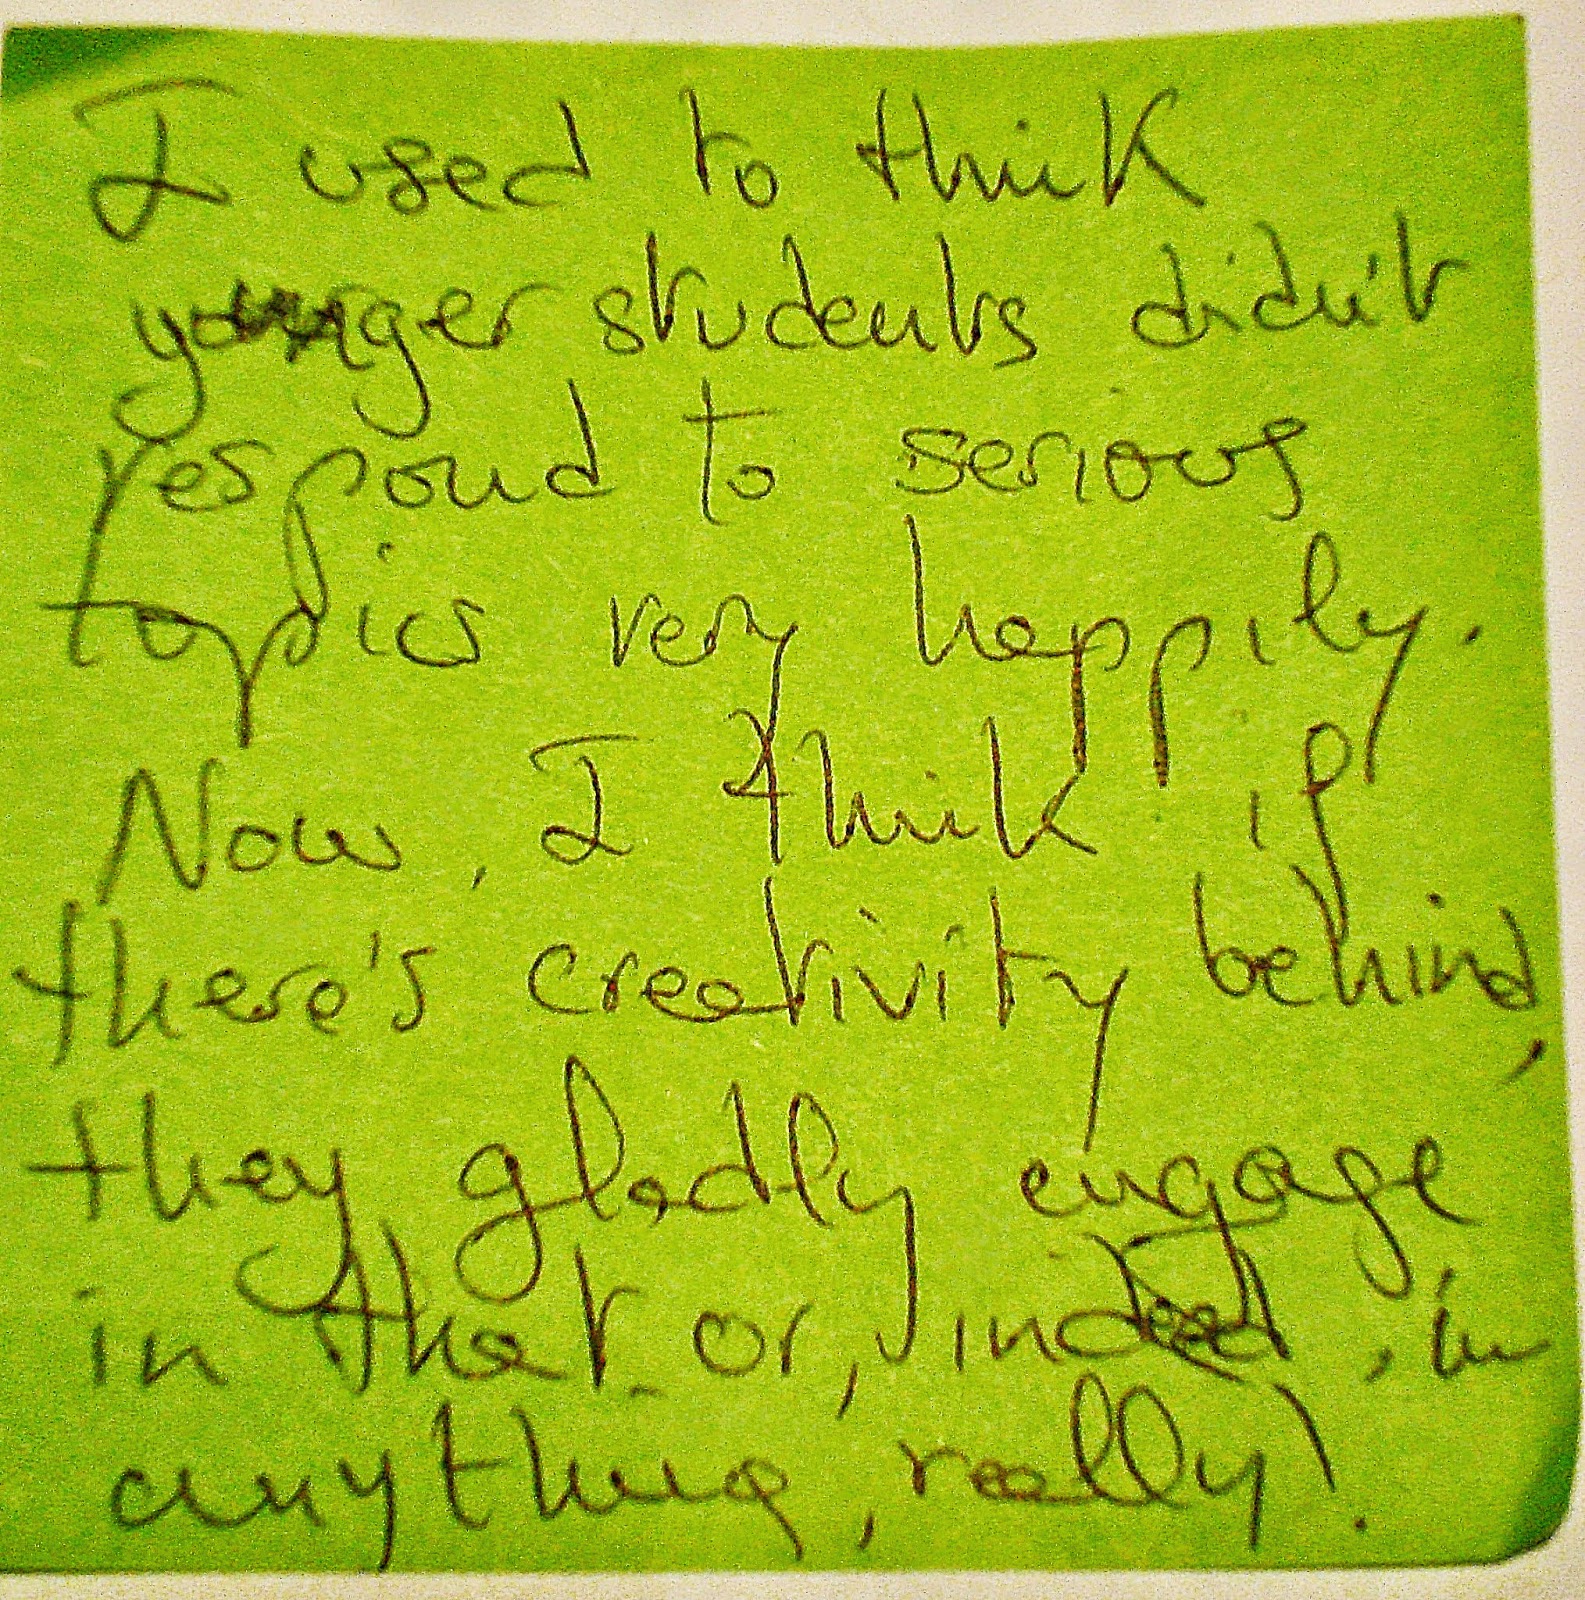 I used to think
younger students didn't
respond to serious
topics very happily.
Now, I think if
there's creativity behind,
they gladly engage
in that or, indeed, in
anything, really!